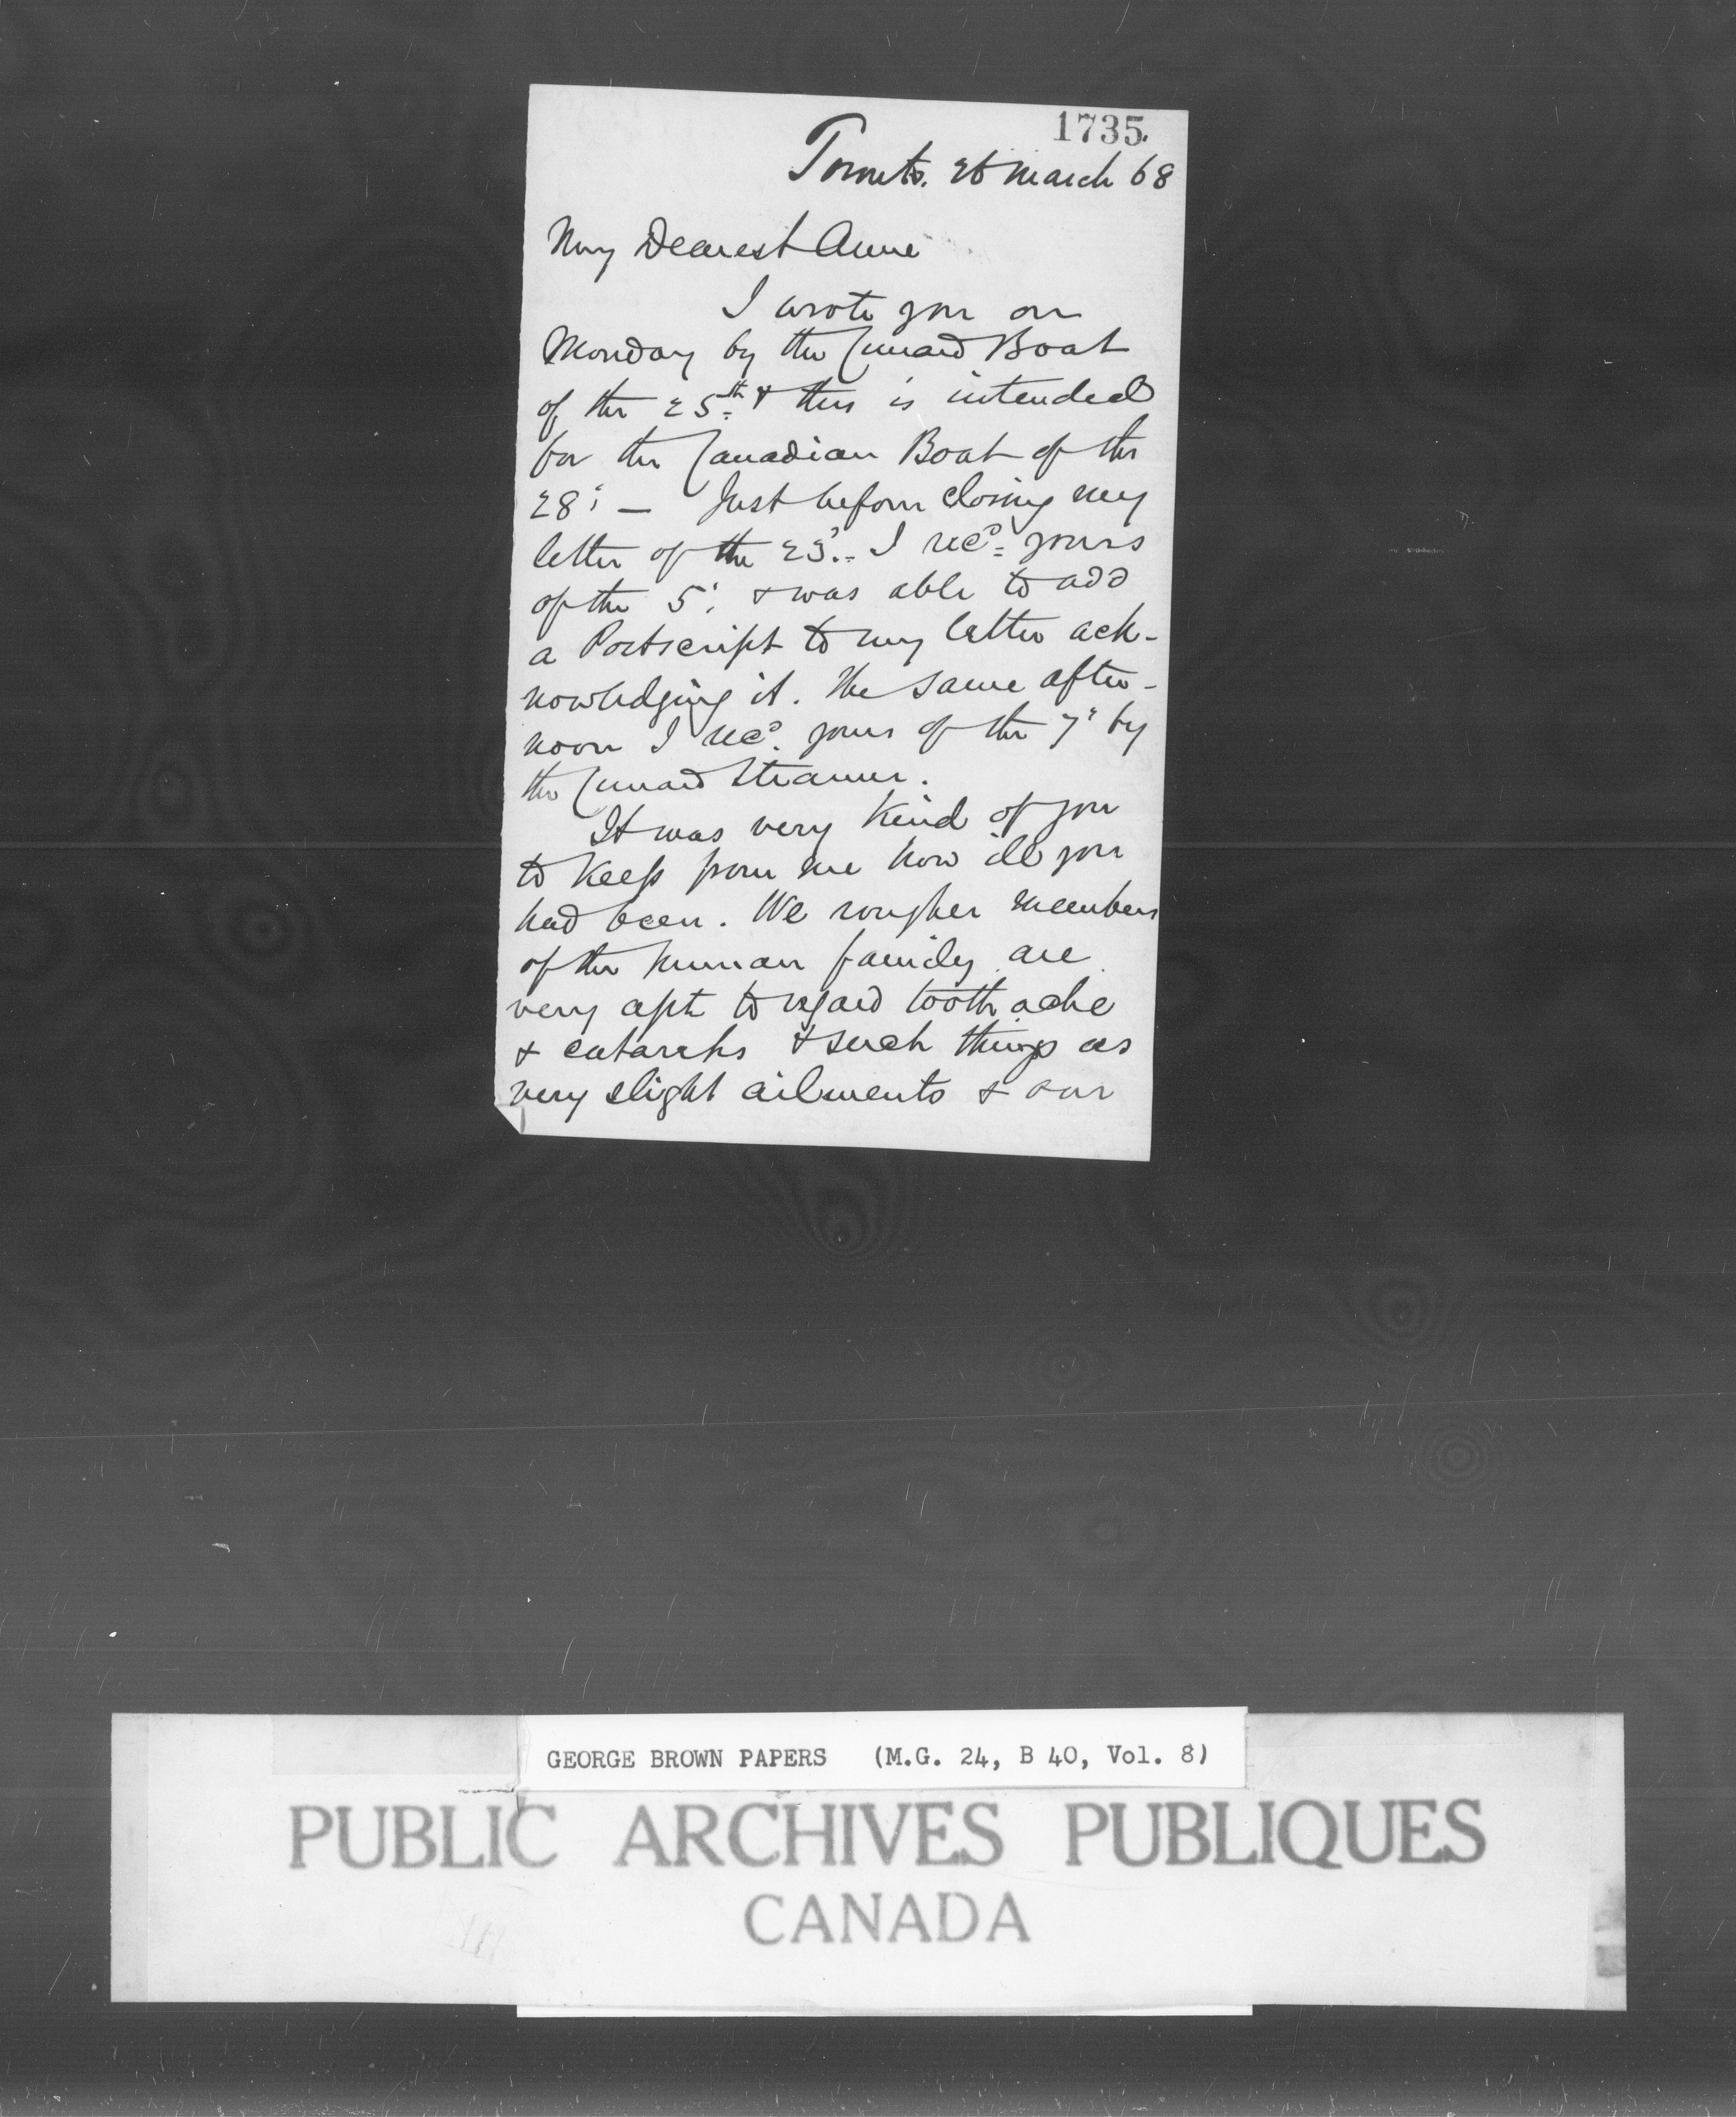 1735.
Toronto. 26 March 68
My Dearest Anne
I wrote you on
Monday by the Cunard Boat
of the 25th & this is intended
for the Canadian Boat of the
28: — Just before closing my
letter of the 23: I recd yours
of the 5: & was able to add
a Postscript to my letter ack-
nowledging it. The same after-
noon I recd. yours of the 7" by
the Cunard Steamer.
It was very kind of you
to keep from me how ill you
had been. We rougher members
of the human family are
very apt to regard tooth ache
& catarrhs & such things as
very slight ailments & our
GEORGE BROWN PAPERS (M.G. 24, B 40, Vol. 8)
PUBLIC ARCHIVES PUBLIQUES
CANADA